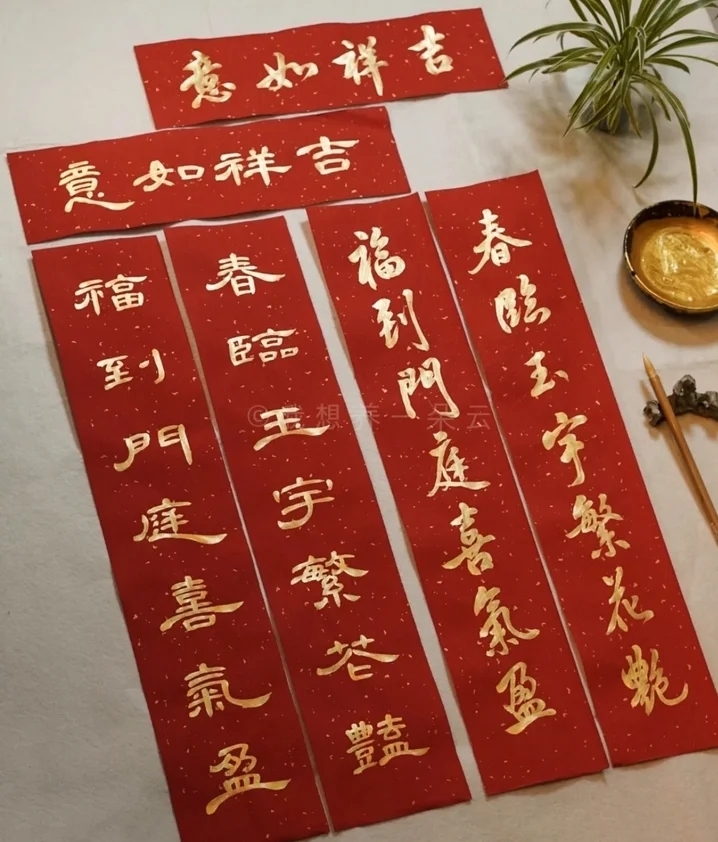 吉祥如意
吉祥如意
春臨玉宇繁花艷
福到門庭喜氣盈
春臨玉宇繁花豔
福到門庭喜氣盈
想养一朵云